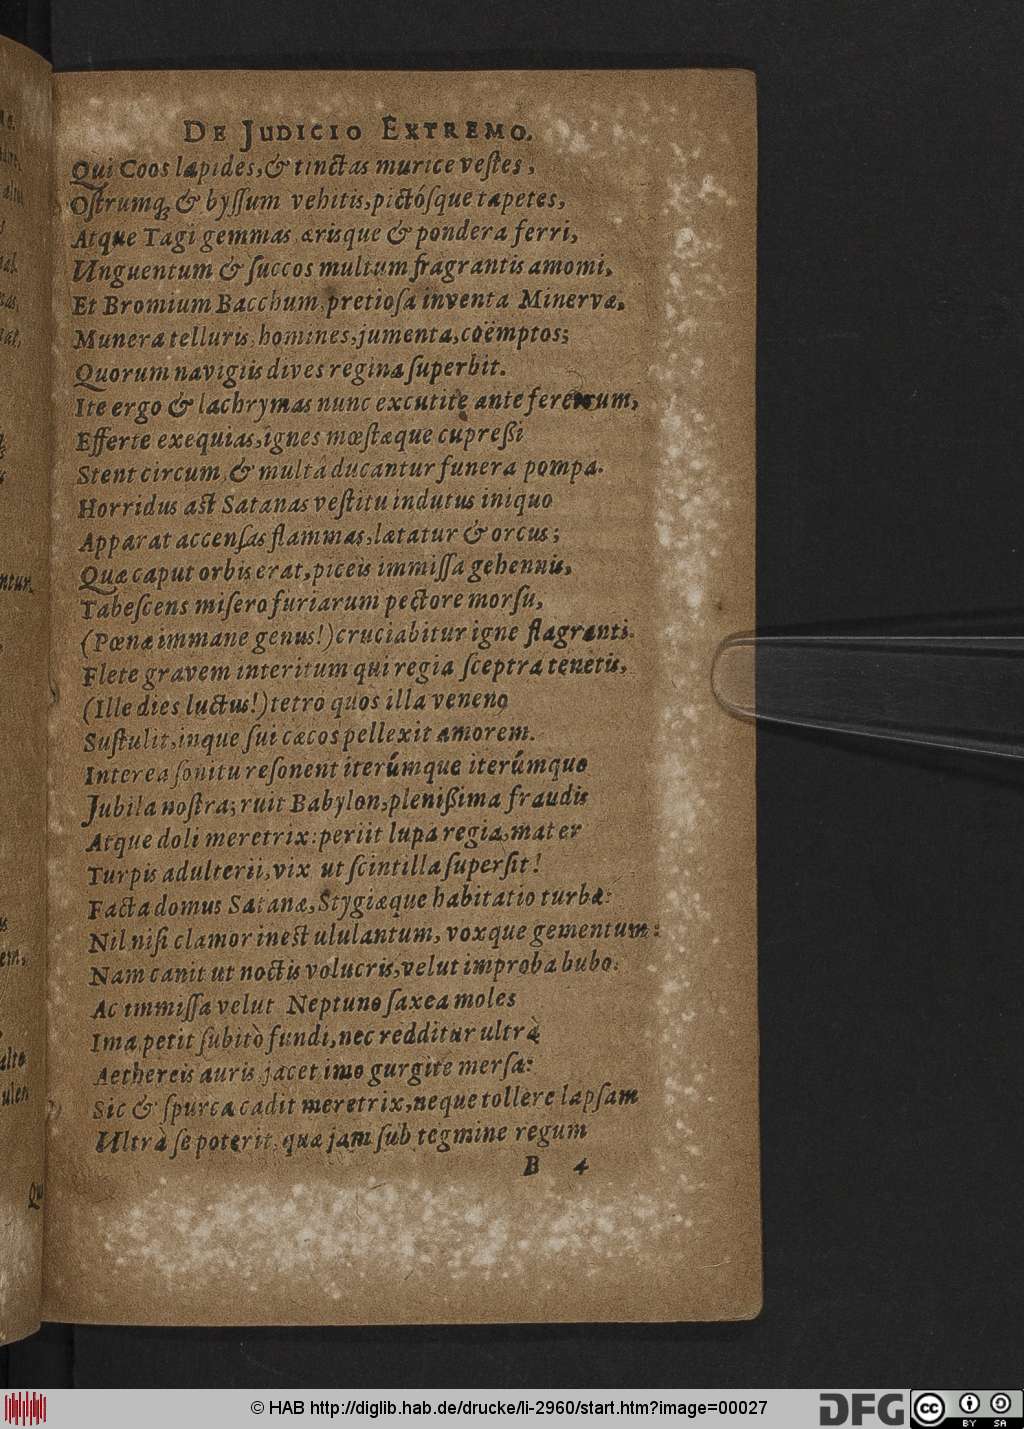 DE JUDICIO EXTREMO.
Qui Coos lapides, & tinctas murice veſtes,
Oſtrumq; & byſſum vehitis, pictóſque tapetes,
Atque Tagi gemmas ærisque & pondera ferri,
Unguentum & ſuccos multum fragrantis amomi,
Et Bromium Bacchum, pretioſa inventa Minervæ,
Munera telluris, homines, jumenta, coëmptos;
Quorum navigiis dives regina ſuperbit.
Ite ergo & lachrymas nunc excutite ante feretrum,
Efferte exequias, ignes mœſtæque cupreßi
Stent circum, & multâ ducantur funera pompa.
Horridus aſt Satanas veſtitu indutus iniquo
Apparat accenſas flammas, lætatur & orcus;
Quæ caput orbis erat, piceis immiſſa gehennis,
Tabeſcens miſero furiarum pectore morſu,
(Pœnæ immane genus!) cruciabitur igne flagranti.
Flete gravem interitum qui regia ſceptra tenetis,
(Ille dies luctus!) tetro quos illa veneno
Suſtulit, inque ſui cæcos pellexit amorem.
Interea ſonitu reſonent iterúmque iterúmque
Jubila noſtra; ruit Babylon, plenißima fraudis
Atque doli meretrix: periit lupa regia, mater
Turpis adulterii, vix ut ſcintilla ſuperſit!
Facta domus Satanæ, Stygiæque habitatio turbæ:
Nil niſi clamor ineſt ululantum, voxque gementum:
Nam canit ut noctis volucris, velut improba bubo:
Ac immiſſa velut Neptuno ſaxea moles
Ima petit ſubitò fundi, nec redditur ultrà
Aethereis auris, jacet imo gurgite merſa:
Sic & ſpurca cadit meretrix, neque tollere lapſam
Ultrà ſe poterit, quæ jam ſub tegmine regum
B 4
© HAB http://diglib.hab.de/drucke/li-2960/start.htm?image=00027
DFG
cc
BY SA